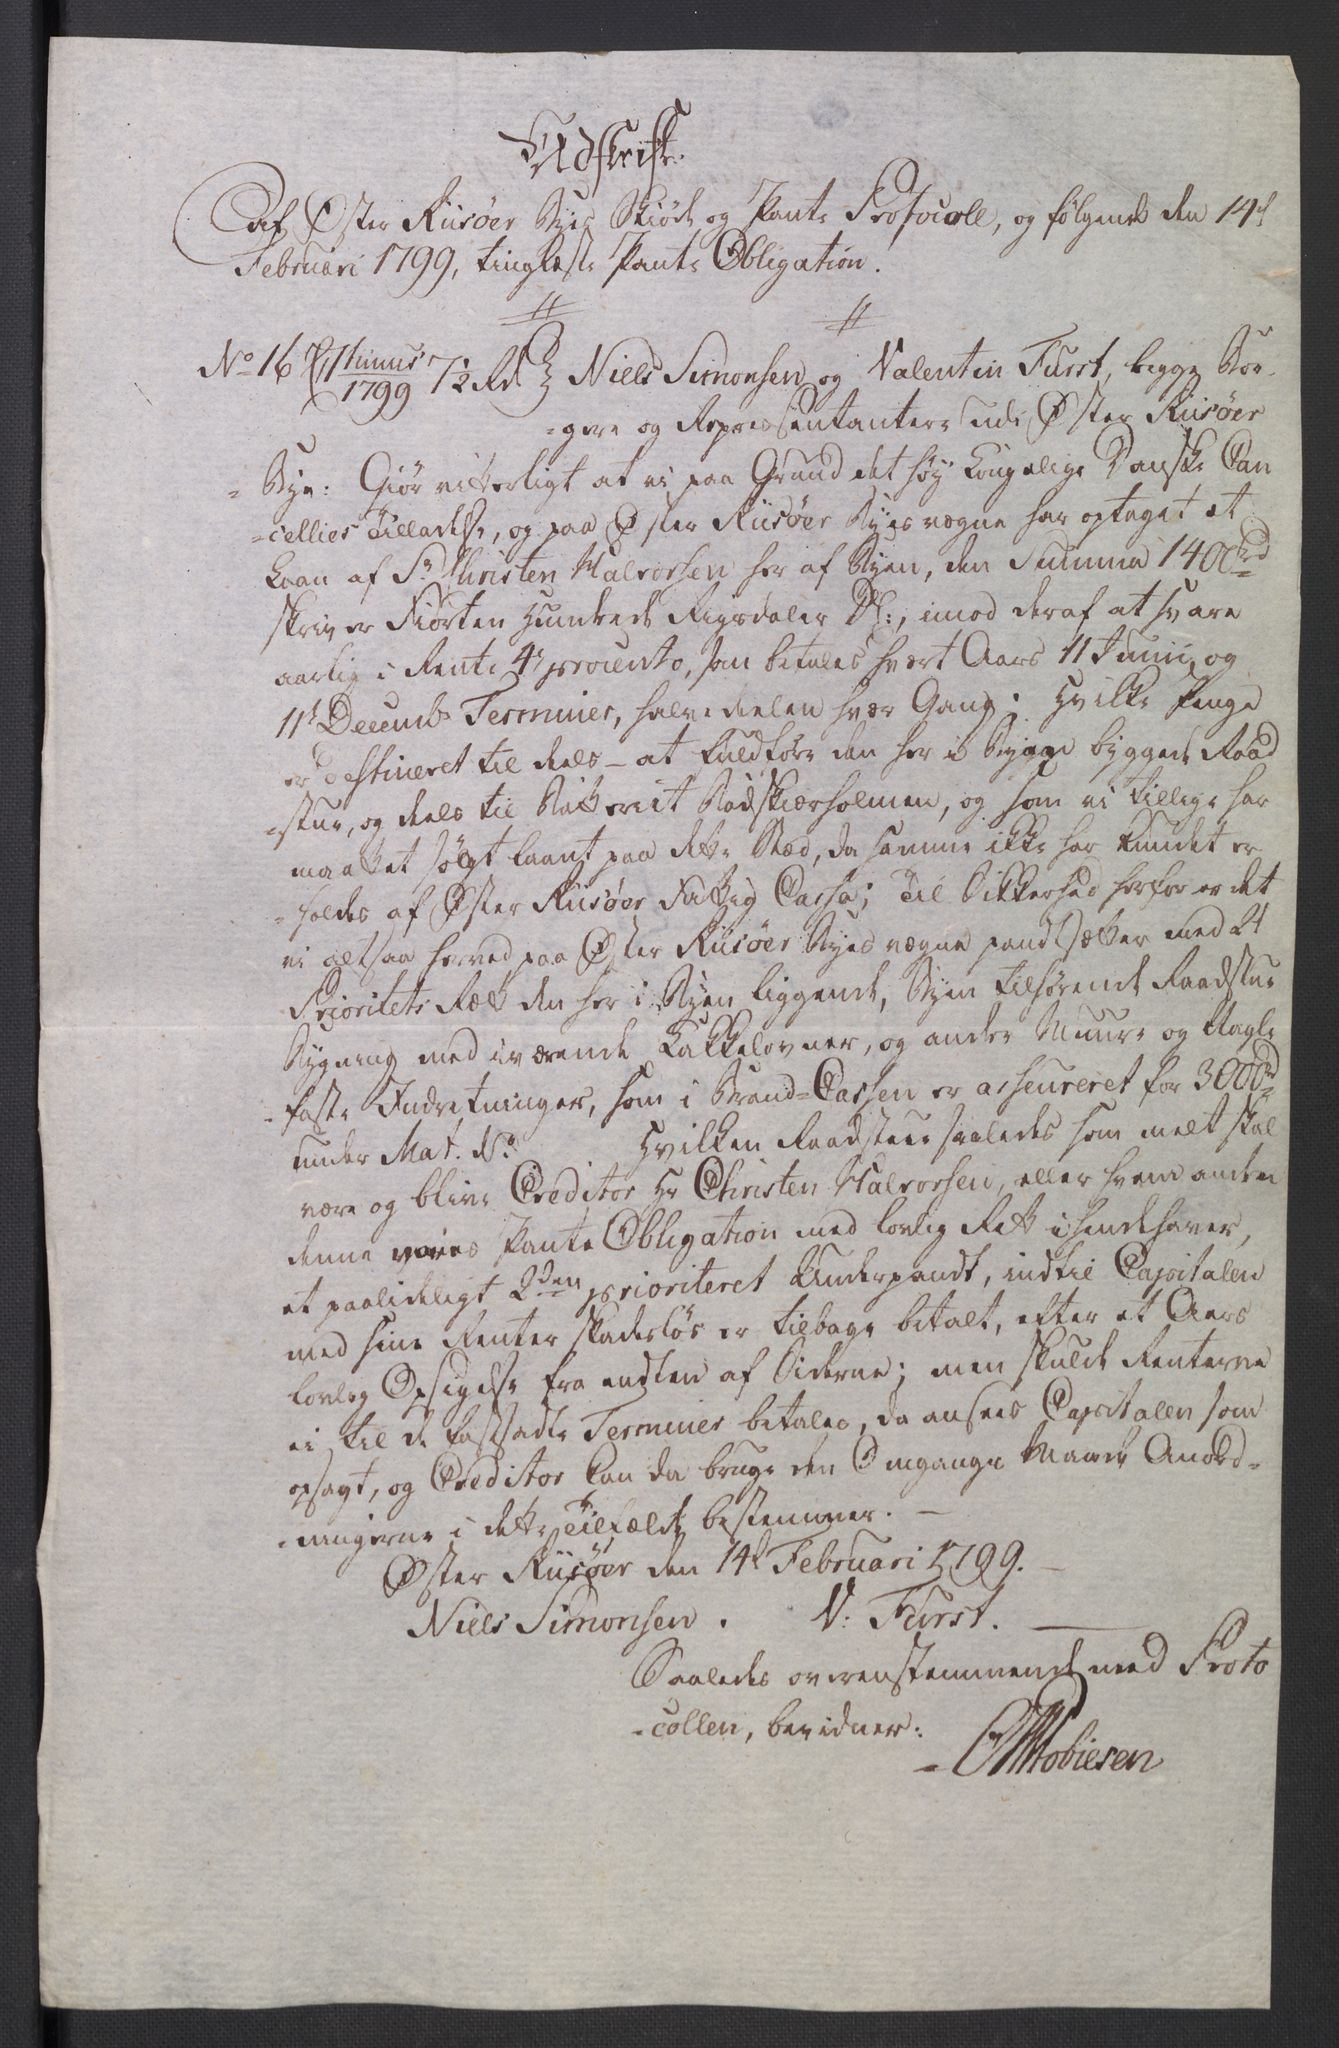 Udskrift.
af Øster Riisøer Byes Skiøde og Pante Protocoll, og følgende den 14d
Februari 1799, tinglæste Pante Obligation.
No 16 1799 72 Rd Niels Simonsen og Valentin Furst, begge Bor-
-gere og Repræsentantere udi Øster Riisøer
Bye: Giør vitterligt at vi paa Grund det høy Kongelige Danske Can
-cellies Tilladelse, og paa Øster Riisøer Byes vegne har optaget et
Laan af Sr Christen Halvorsen her af Byen, den Summa 1400 rd
skriver Fiorten Hundrede Rigsdaler D:, imod deraf at svare
aarlig i Rente 4 procento, som betales hvert Aars 11 Junii og
11t Decembr Terminer, halve deelen hver Gang; Hvilke Penge
er destineret til deels at fuldføre den her i Byen byggede Raad
-stue, og deels til Batteriet Rødskiærholmen, og som vi tillige har
maattet søgt laant paa dette Stæd, da samme ikke har kundet er
-holdes af Øster Riisøer Fattig Cassa; Til Sikkerhed herfor er det
vi altsaa herved paa Øster Riisøer Byes vegne pandtsætter med 2t
Prioritets Ræt den her i Byen liggende, Byen tilhørende Raadstue
Bygning med iværende Kakkelovner, og andre Muur- og Nagle
-faste Indretninger, som i Brand-Cassen er asseureret for 3000 rd
under Mat. No Hvilken Raadstue saaledes som melt skal
være og blive Creditor Hr Christen Halvorsen, eller hvem anden
denne vores Pante Obligation med lovlig Ret ihændehaver,
et paalideligt 2den prioriteret Underpandt, indtil Capitalen
med sine Renter skadesløs er tilbage betalt, efter et Aars
lovlig Opsigelse fra endten af Siderne; men skulde Renterne
ei til de fastsadte Terminer betales, da ansees Capitalen som
opsagt, og Creditor kan da bruge den Omgangs Maade Anord-
-ningerne i dette Tilfælde bestemmer.
Øster Riisøer den 14d Februari 1799.
Niels Simonsen. V: Furst.
Saaledes overenstemmende med Proto
-collen, bevidner:
Tobiesen